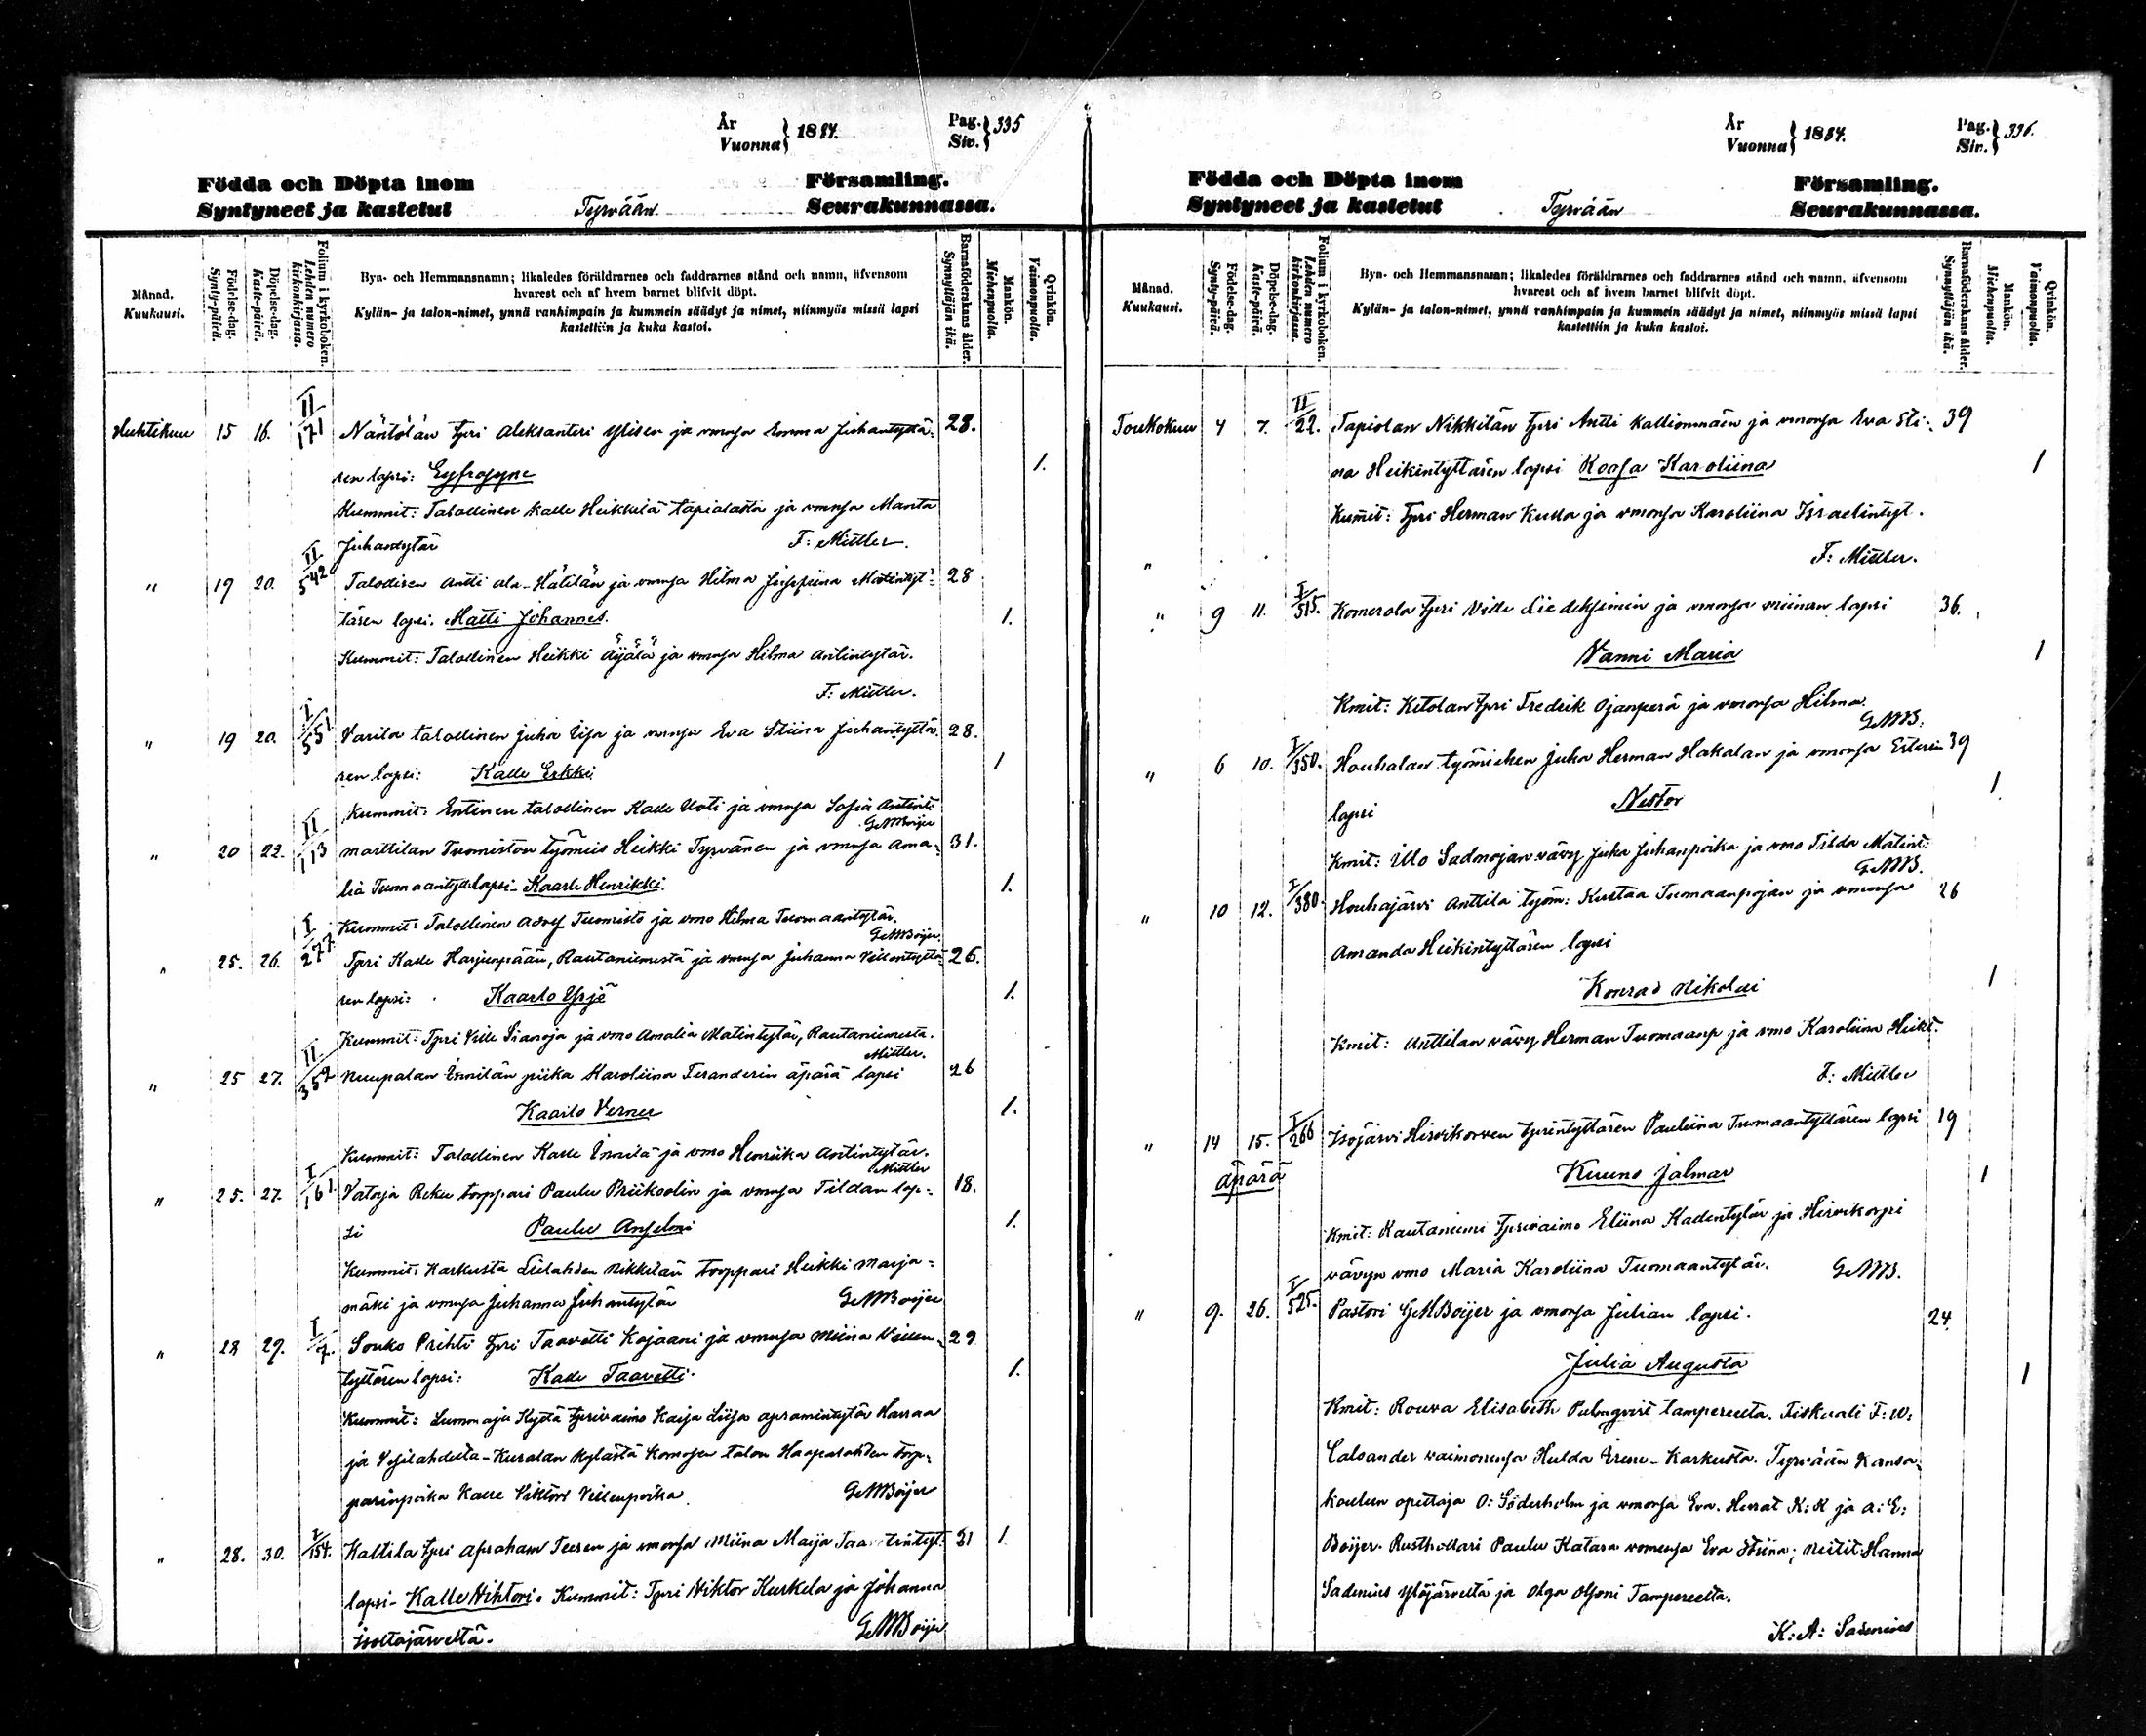 År
Vuonna } 1884.
Pag.
Siv. } 335
Födda och Döpta inom Församling.
Syntyneet ja kastetut Tyrvään Seurakunnassa.
Månad.
Kuukausi.
Födelse-dag.
Synty-päivä.
Döpelse-dag.
Kaste-päivä.
Folium i kyrkoboken.
Lehden numero kirkonkirjassa.
Byn- och Hemmansnamn; likaledes föräldrarnes och faddrarnes stånd och namn, äfvensom
hvarest och af hvem barnet blifvit döpt.
Kylän- ja talon-nimet, ynnä vanhimpain ja kummein säädyt ja nimet, niinmyös missä lapsi
kastettiin ja kuka kastoi.
Barnaföderskans ålder.
Synnyttäjän ikä.
Mankön.
Miehenpuolta.
Qvinkön.
Vaimonpuolta.
Huhtikuu 15 16. II/171 Näntölän tpri Aleksanteri Ylisen ja vmonsa Emma Juhantyttä- 28.
ren lapsi: Eyfrosyne 1.
Kummit: Talollinen Kalle Heikkilä Tapiolasta ja vmonsa Manta
Juhantytär F: Miller.
" 19 20. II/542 Talollisen Antti Ala-Hätilän ja vmonsa Hilma Josefiina Matintyt- 28
tären lapsi. Matti Johannes. 1.
Kummit: Talollinen Heikki Äijälä ja vmonsa Hilma Antintytär.
F: Miller.
" 19 20. I/551 Varila talollinen Juha Uja ja vmonsa Eva Stiina Juhantyttä- 28.
ren lapsi: Kalle Erkki 1
Kummit: Entinen talollinen Kalle Uoti ja vmonsa Sofia Antint:
G M Boijer
" 20 22. II/113 Marttilan Tuomiston työmies Heikki Tyrvänen ja vmonsa Ama- 31.
lia Tuomaantyt: lapsi- Kaarle Henrikki. 1.
Kummit: Talollinen Adolf Tuomisto ja vmo Hilma Tuomaantytär.
G M Boijer.
" 25. 26. I/277. Tpri Kalle Harjunpään, Rautaniemestä ja vmonsa Juhanna Villentyttä- 26.
ren lapsi: Kaarlo Yrjö 1.
Kummit: Tpri Ville Sianoja ja vmo Amalia Matintytär, Rautaniemestä.
Miller.
" 25 27. II/352 Nuupalan Ennilän piika Karoliina Feranderin äpärä lapsi 26
Kaarlo Verner 1.
Kummit: Talollinen Kalle Ennilä ja vmo Henriika Antintytär.
Miller
" 25. 27. I/161. Vataja Reku torppari Paulu Priikoolin ja vmonsa Tildan lap- 18.
si Paulu Anselmi 1.
Kummit: Karkusta Lielahden Nikkilän torppari Heikki Marja-
mäki ja vmonsa Juhanna Juhantytär G M Boijer
" 28 29. I/7. Souko Prihti tpri Taavetti Kajaani ja vmonsa Miina Villen- 29
tyttären lapsi: Kalle Taavetti. 1.
Kummit: Lummaja Kytä tprivaimo Kaija Liisa Apramintytär Harraa
ja Vesilahdelta-Kuralan kylästä Komosen talon Haapalahden torp-
parinpoika Kalle Viktor Villenpoika. G M Boijer
" 28. 30. I/154. Kaltila tpri Apraham Teeren ja vmonsa Miina Maija Taavettintyt: 31 1.
lapsi- Kalle Vihtori. Kummit: Tpri Viktor Kurkela ja Johanna
Isoltajärveltä. G M Boijer
År
Vuonna } 1884.
Pag.
Siv. } 336.
Födda och Döpta inom Församling.
Syntyneet ja kastetut Tyrvään Seurakunnassa.
Månad.
Kuukausi.
Födelse-dag.
Synty-päivä.
Döpelse-dag.
Kaste-päivä.
Folium i kyrkoboken.
Lehden numero kirkonkirjassa.
Byn- och Hemmansnamn; likaledes föräldrarnes och faddrarnes stånd och namn, äfvensom
hvarest och af hvem barnet blifvit döpt.
Kylän- ja talon-nimet, ynnä vanhimpain ja kummein säädyt ja nimet, niinmyös missä lapsi
kastettiin ja kuka kastoi.
Barnaföderskans ålder.
Synnyttäjän ikä.
Mankön.
Miehenpuolta.
Qvinkön.
Vaimonpuolta.
Toukokuu 4 7. II/22. Tapiolan Nikkilän tpri Antti Kalliomäen ja vmonsa Eva Sti- 39
na Heikintyttären lapsi Roosa Karoliina 1
Kumit: Tpri Herman Kulla ja vmonsa Karoliina Israelintyt.
" F: Miller.
" 9 11. I/515. Komerola tpri Ville Liedeksimin ja vmonsa Miinan lapsi 36.
Nanni Maria 1
Kmit: Ketolan tpri Fredrik Ojanperä ja vmonsa Hilma.
G M B.
" 6 10. I/350. Houhalan työmiehen Juha Herman Hakalan ja vmonsa Esterin 39
lapsi Nestor 1.
Kmit: Illo Sadinojan vävy Juha Juhanpoika ja vmo Tilda Matint:
G M B.
" 10 12. I/380. Houhajärvi Anttila työm: Kustaa Tuomaanpojan ja vmonsa 26
Amanda Heikintyttären lapsi
Konrad Nikolai 1
Kmit: Anttilan vävy Herman Tuomaanp ja vmo Karoliina Heikt:
F: Miller
" 14 15. I/266 Isojärvi Hirvikorven tprintyttären Pauliina Tuomaantyttären lapsi 19
äpärä Kuuno Jalmar 1
Kmit: Rautaniemi tprivaimo Eliina Kallentytär ja Hirvikorpi
vävyn vmo Maria Karoliina Tuomaantytär. G M B.
" 9. 26. I/525. Pastori G M Boijer ja vmonsa Julian lapsi. 24
Julia Augusta 1
Kmit: Rouva Elisabeth Palmqvist Tampereelta. Fiskaali F: W:
Calsander vaimonensa Hulda Irene- Karkusta. Tyrvään Kansa-
koulun opettaja O: Söderholm ja vmonsa Eva. Herrat K: R ja A: E:
Boijer. Rusthollari Paulu Katara vmonensa Eva Stiina; Neitit: Hanna
Sadenius Ylöjärveltä ja Olga Oljoni Tampereelta.
K: A: Sadenius